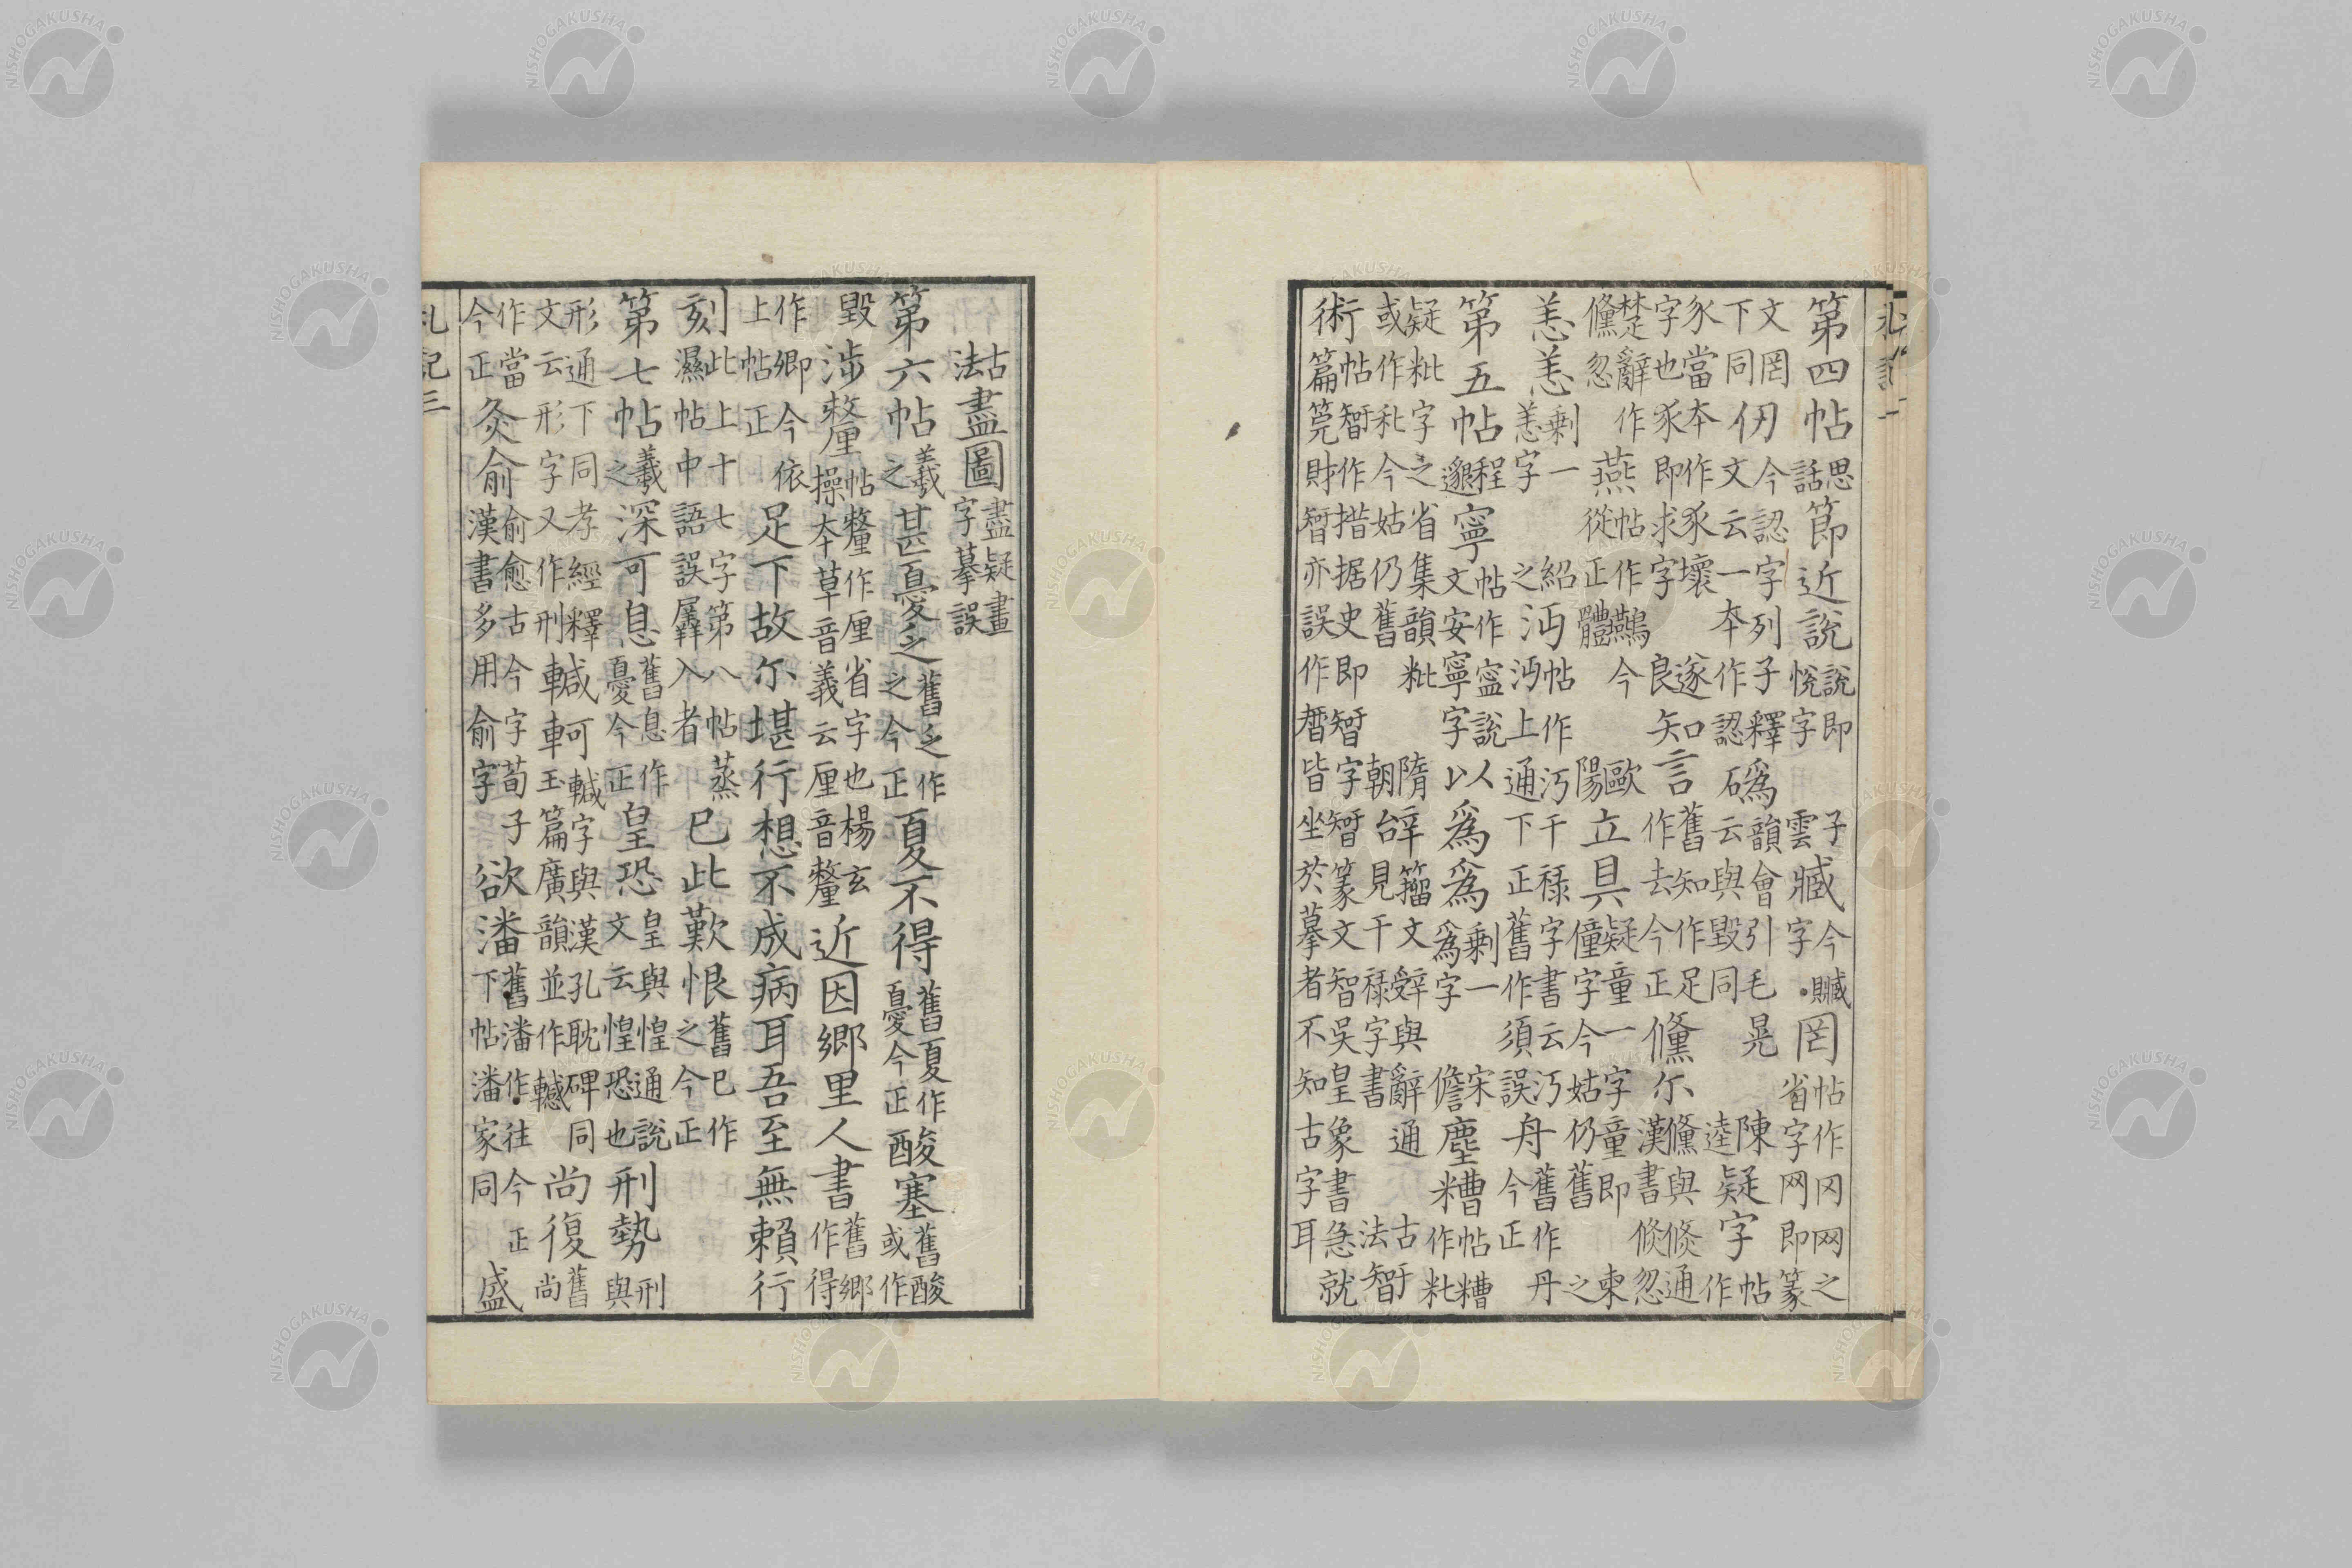 第四帖思話節近說說即悅字子雲臧今贓字罔帖作冈网之省字网即篆
文罔下同仞今認字列子釋文云一本作認韻會引毛晃云與毀同陳逵疑字帖作
豕當本作豕壞遂字也豕即求字良知言舊知作足作去今正儵尔儵與倏通漢書倏忽
楚辭作儵忽燕帖作鷰今從正體歐陽立具疑童一字童即僮字今姑仍舊柬之
恙恙剩一恙字紹之沔帖作沔干祿字書云沔沔上通下正舊作須誤舟舊作丹今正
第五帖程邈寧帖作寍說文安寧字以爲爲剩一爲字宋儋塵糟帖糟作粃
疑粃字之省集韻粃或作秕今姑仍舊隋朝辝籀文辤與辭通見干祿字書古法智
術帖智作措据史即智字智篆文智吳皇象書急就篇筦財智亦誤作皆坐於摹者不知古字耳
古法盡圖盡疑畫字摹誤
第六帖羲之甚憂之舊之作之今正夏不得舊夏作憂今正酸塞舊酸或作
毀涉釐帖釐作厘省字也楊玄操本草音義云厘音釐近因鄉里人書舊鄉作得
作卿今依上帖正足下故尔堪行想不成病耳吾至無賴行
刻此上十七字第八帖濕帖中語誤羼入者蒸已此歎恨舊已作之今正
第七帖羲之深可息舊息作憂今正皇恐皇與惶通說文云惶恐也刑勢刑與
形通下同孝經釋文云形字又作刑轗軻轗字與漢孔耽碑同玉篇廣韻並作轗尚復舊尚
作當今正灸俞俞愈古今字荀子漢書多用俞字欲潘舊潘作往今正下帖潘家同盛
札記三